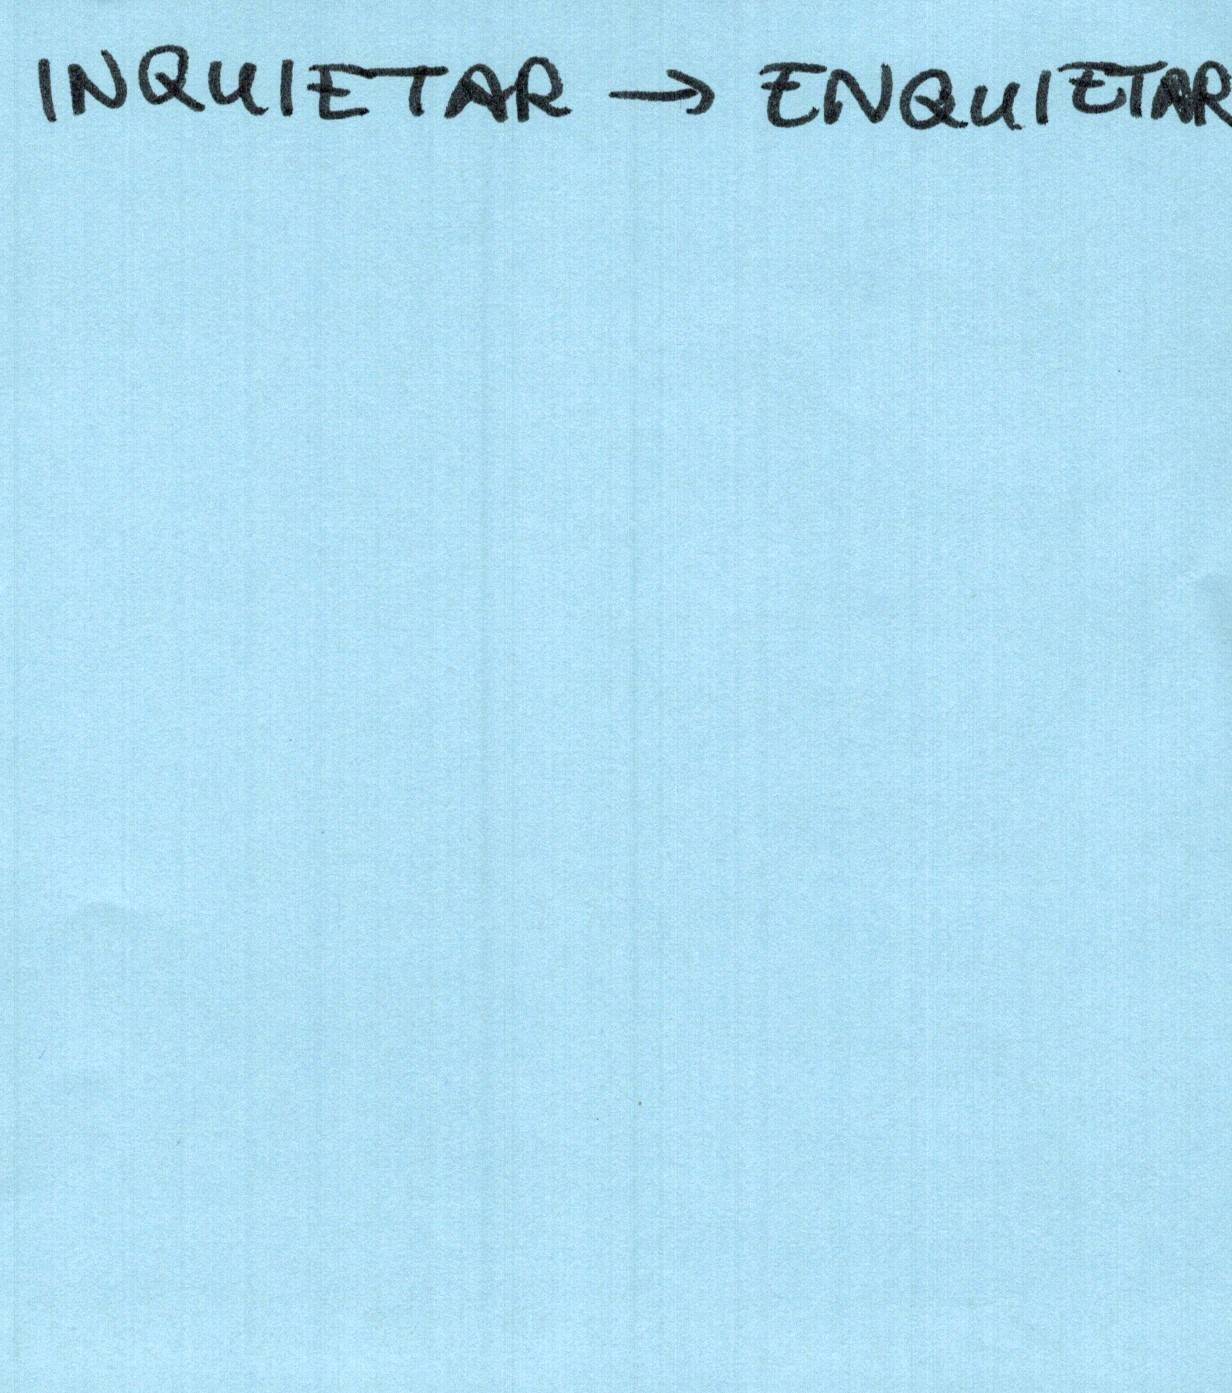 INQUIETAR → ENQUIETAR